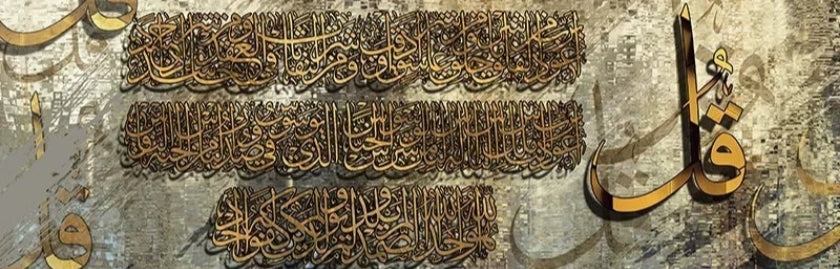 قُل
أعوذ برب الفلق من شر ما خلق ومن شر غاسق إذا وقب ومن شر النفاثات في العقد ومن شر حاسد إذا حسد
أعوذ برب الناس ملك الناس إله الناس من شر الوسواس الخناس الذي يوسوس في صدور الناس من الجنة والناس
هو الله أحد الله الصمد لم يلد ولم يولد ولم يكن له كفوا أحد